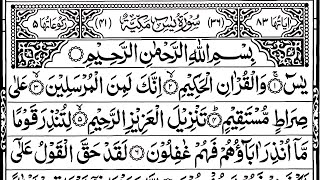 اٰیَاتُهَا ٨٣ (٣٦) سُوْرَةُ یٰسٓ مَكِّیَّةٌ (٤١) رُكُوْعَاتُهَا ٥
بِسْمِ اللّٰهِ الرَّحْمٰنِ الرَّحِیْمِ
یٰسٓ ۚ﴿١﴾ وَ الْقُرْاٰنِ الْحَكِیْمِ ۙ﴿٢﴾ اِنَّكَ لَمِنَ الْمُرْسَلِیْنَ ۙ﴿٣﴾ عَلٰى
صِرَاطٍ مُّسْتَقِیْمٍ ؕ﴿٤﴾ تَنْزِیْلَ الْعَزِیْزِ الرَّحِیْمِ ۙ﴿٥﴾ لِتُنْذِرَ قَوْمًا
مَّاۤ اُنْذِرَ اٰبَآؤُهُمْ فَهُمْ غٰفِلُوْنَ ﴿٦﴾ لَقَدْ حَقَّ الْقَوْلُ عَلٰۤى